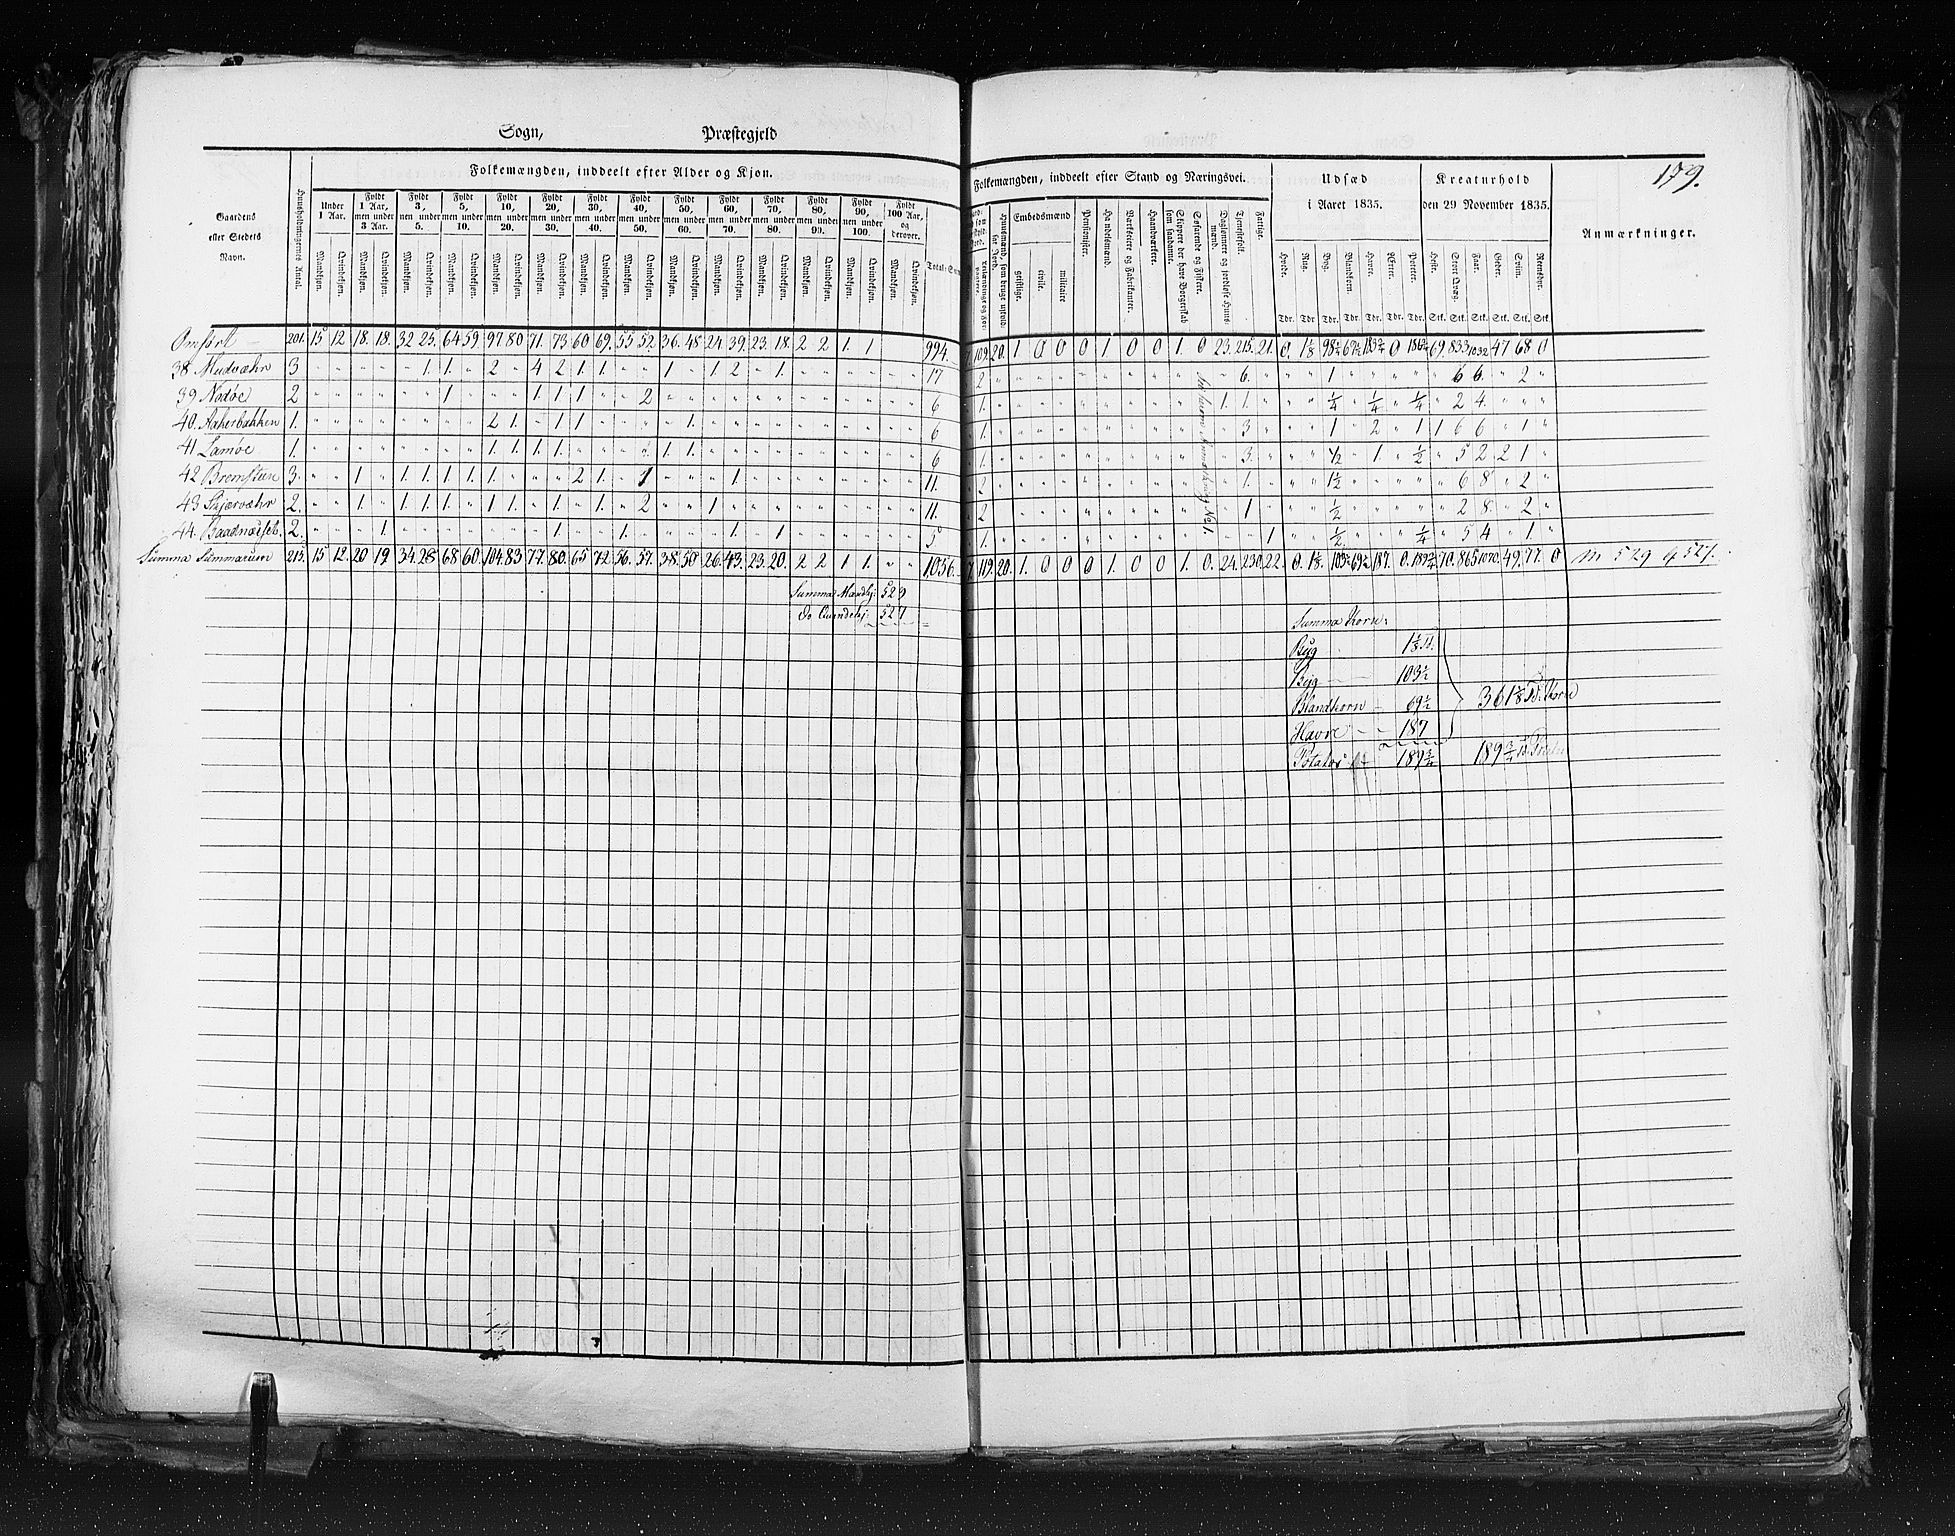 Sogn, Præstegjeld
179.
Folkemængden, inddeelt efter Alder og Kjøn.
Folkemængden, inddeelt efter Stand og Næringsvei.
Udsæd i Aaret 1835.
Kreaturhold den 29 November 1835.
Anmærkninger.
Gaardens eller Stedets Navn.
Huusholdningernes Antal.
Under 1 Aar.
Fyldt 1 Aar, men under 3 Aar.
Fyldt 3, men under 5.
Fyldt 5, men under 10.
Fyldt 10, men under 20.
Fyldt 20, men under 30.
Fyldt 30, men under 40.
Fyldt 40, men under 50.
Fyldt 50, men under 60.
Fyldt 60, men under 70.
Fyldt 70, men under 80.
Fyldt 80, men under 90.
Fyldt 90, men under 100.
Fyldt 100 Aar, og derover.
Mandkjøn. Qvindekjøn.
Embedsmænd
geistlige. civile. militaire
Pensionister.
Handelsmænd.
Værkseiere og Fabrikanter.
Haandværkere.
Skippere der have Borgerskab som saadanne.
Søfarende og Fiskere.
Daglønnere og jordløse Huusmænd.
Tjenestefolk.
Fattige.
Hvede. Rug. Byg. Blandkorn. Havre. Ærter. Poteter.
Heste. Stort Qvæg. Faar. Geder. Sviin. Rensdyr.
Tdr. Tdr Tdr. Tdr. Tdr. Tdr. Tdr. Stk. Stk. Stk. Stk. Stk. Stk.
201. 15 12 18. 18. 32 25. 64 59 97 80 71. 73 60 69. 55 52. 36. 48 24 39. 23. 18. 2 2 1. 1 994. 109. 20. 1. 0 0 0 1 0 0 1. 0 23. 215. 21. 0. 1⅛ 98½ 69½ 183¾ 0 186¾ 69. 833 1032 47 68 0
38 Mudvæhr 3 1. 1. 2 4 2 1. 1. 1 1. 2 1. 17 2 6. 1 6 6. 2
39 Nodøe 2 1 1. 1. 1 2 6 1. 1. 1. ¼ ¼ ¼ 2 4.
40. Aakerbakken 1. 2 1. 1 1 1. 6 1. 3 1 2 1 1 6 6 1
41 Lamøe 1. 1. 1. 1. 1. 1. 1. 6 1. 3 ½ 1 ½ 5 2 2 1
42 Bremsteen 3 1 1. 1. 1. 1. 1. 2 1. 1 1. 11. 2 1. 1½ 6 8 2
43 Skjærvæhr 2. 1. 1. 1. 1. 1. 1. 1. 1. 2 1 11. 2 1 ½ 2 8. 2
44. Baadnæsset. 2. 1 1. 1. 1. 1 5 1. 1 ½ ¼ 5 4 1.
Summa Summarum 215. 15 12. 20 19 34. 28 68 60. 104. 83 77. 80. 65 72. 56. 57. 38. 50 26. 43. 23. 20. 2 2 1 1. 1056. 119. 20. 1. 0 0 0 1. 0 0 1. 0. 24. 230. 22. 0. 1⅛ 103½ 69½ 187. 0. 189¾ 70. 865 1070. 49. 77. 0 M 529 q 527.
Summa Mandkj: 529
do Quindekj: 527
Summa Korn:
Rug 1⅛ Td.
Byg 103½
Blandkorn 69½
Havre 187
361⅛ Td. Korn
Potatos 189¾
189¾